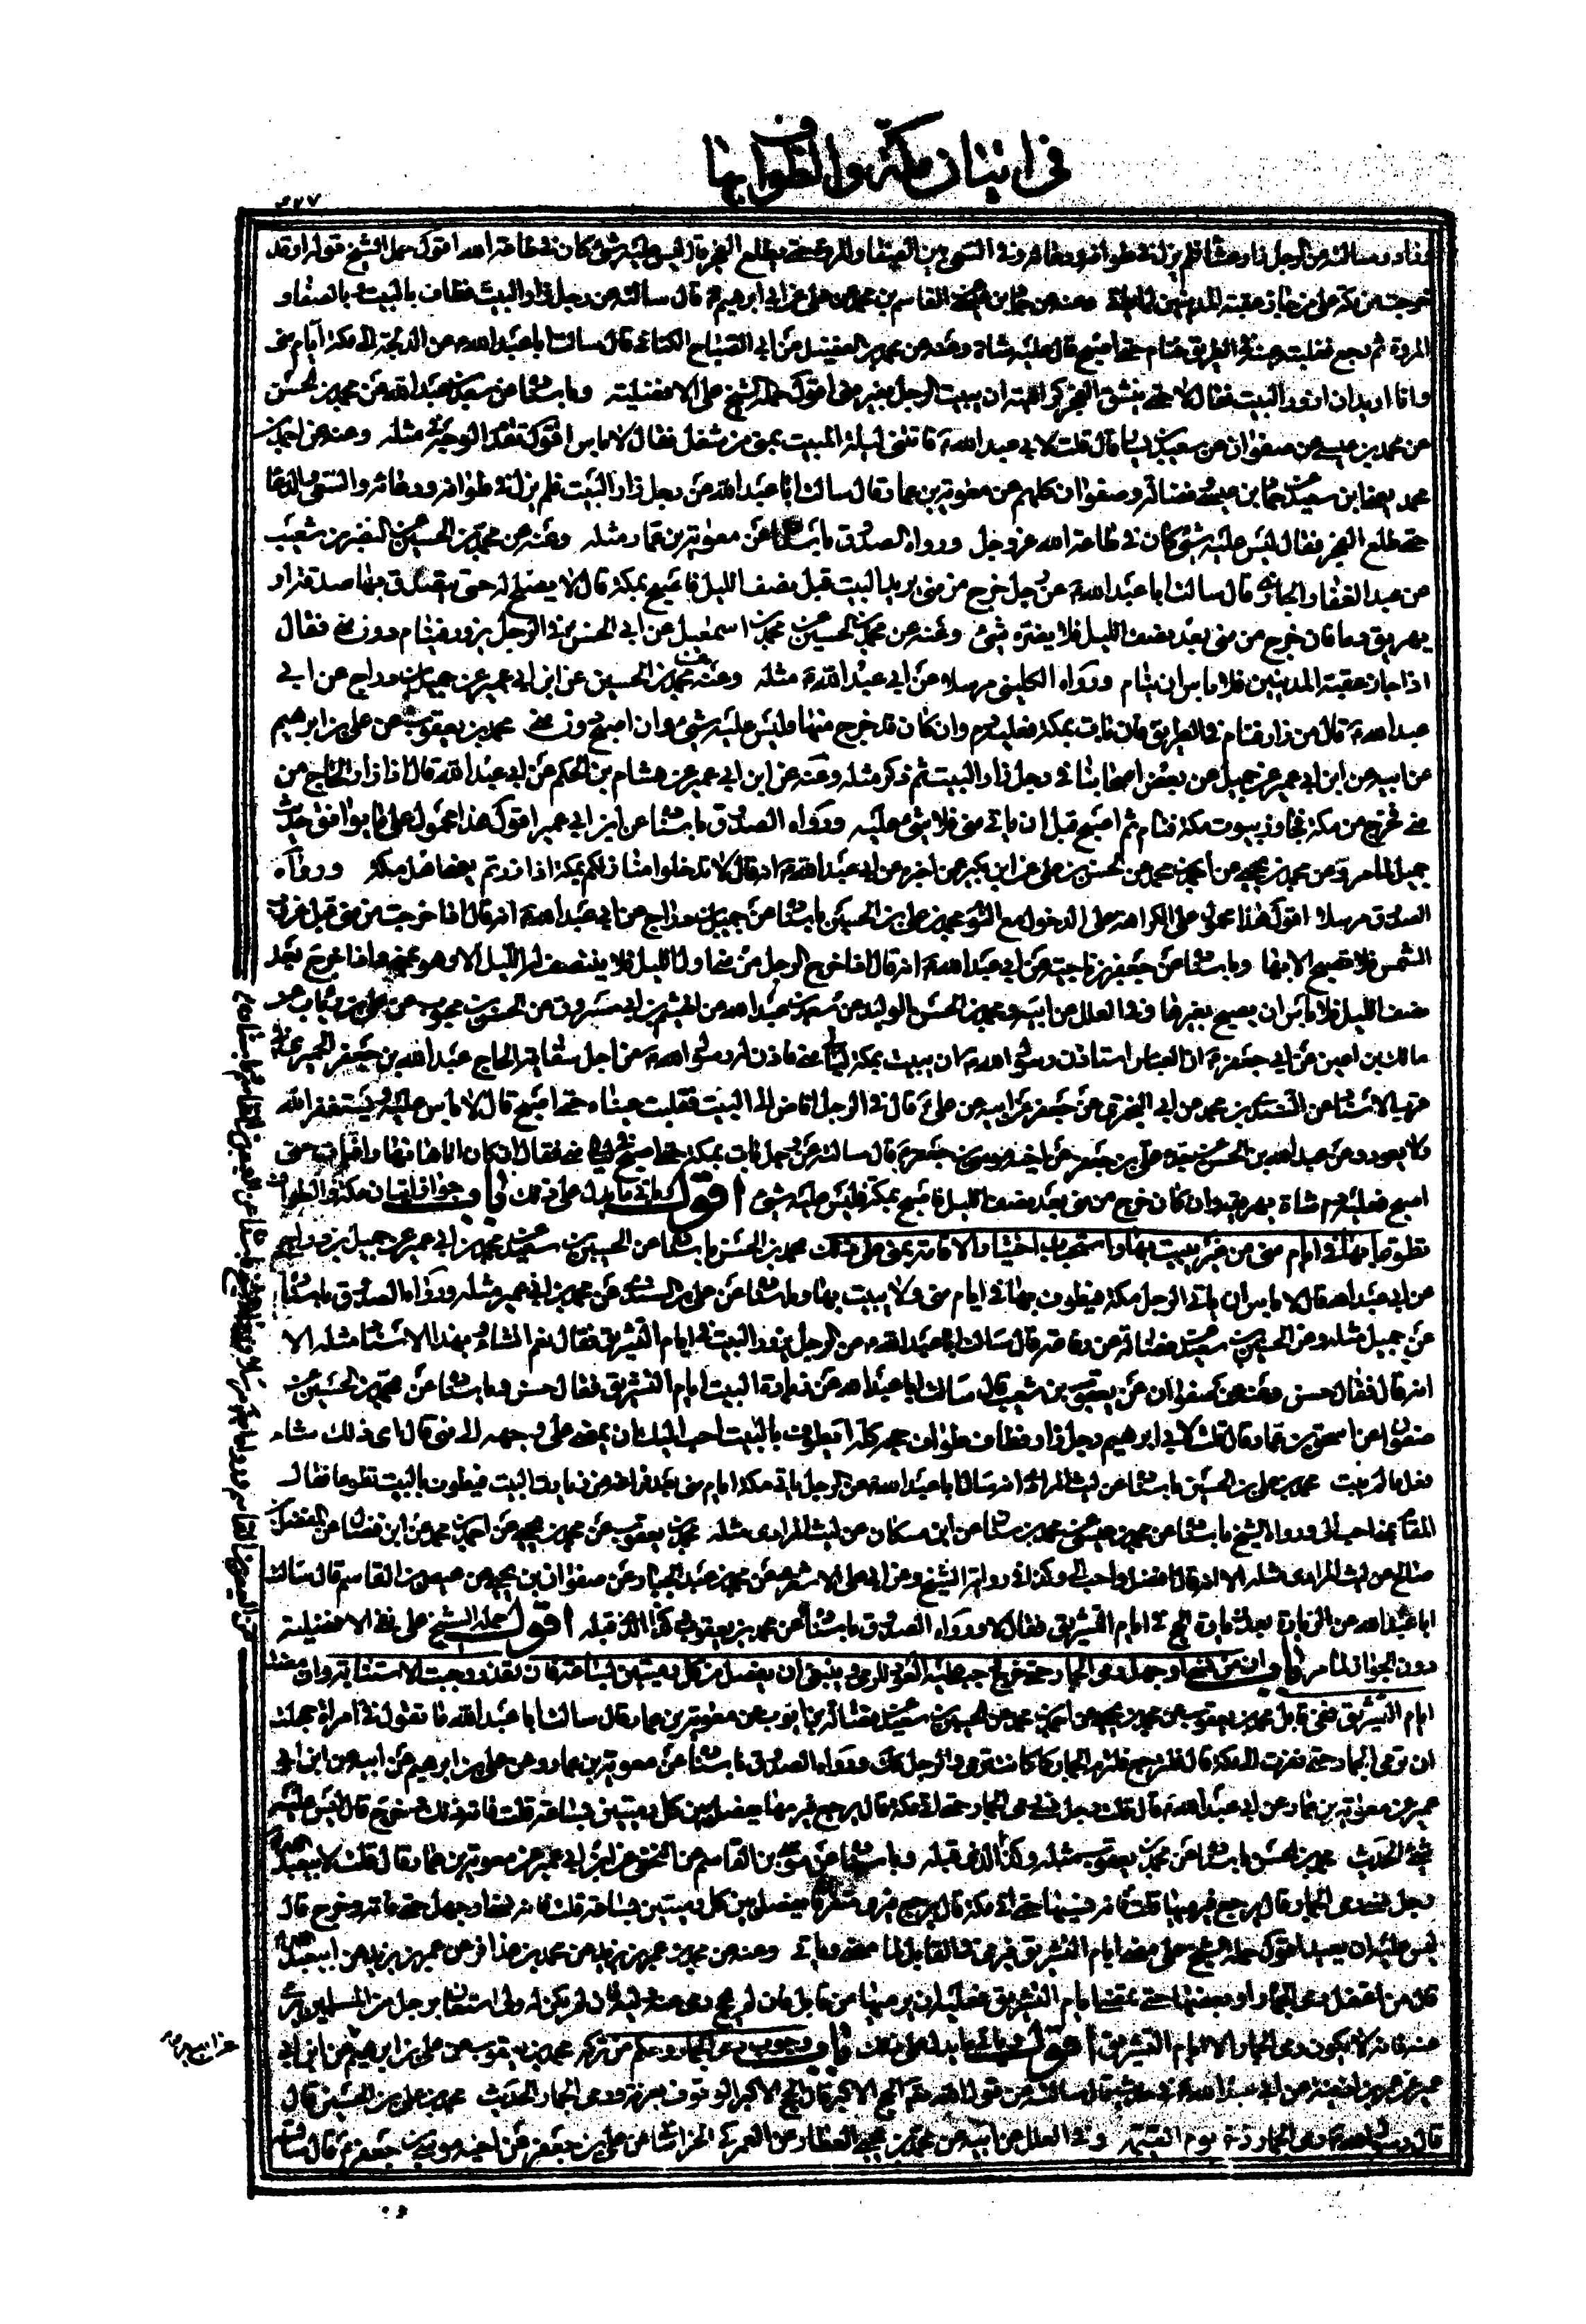 في اتيان مكة والطواف بها
وزاد وسالته عن الرجل زار عشاء فلم يزل في طوافه ودعائه وفي السعي بين الصفا والمروة حتى يطلع الفجر قال ليس عليه شيء كان في طاعة الله اقول حمل الشيخ قوله او قد
خرجت من مكة على من جاز عقبة المدنيين لما ياتي وعنه عن القاسم بن محمد عن علي عن ابي ابراهيم قال سالته عن رجل زار البيت فطاف بالبيت وبالصفا و
المروة ثم رجع فغلبته عينه في الطريق فنام حتى اصبح قال عليه شاة وعنه عن محمد بن الفضيل عن ابي الصباح الكناني قال سالت ابا عبد الله عن الدلجة الى مكة ايام منى
وانا اريد ان ازور البيت فقال لا حتى ينشق الفجر كراهية ان يبيت الرجل بغير منى اقول حمله الشيخ على الافضلية وباسناده عن سعد بن عبد الله عن محمد بن الحسين
عن محمد بن عيسى عن صفوان عن سعيد بن يسار قال قلت لابي عبد الله فاتتني ليلة المبيت بمنى من شغل فقال لا باس اقول تقدم الوجه في مثله وعنه عن احمد بن
محمد حماد بن عيسى فضالة وصفوان كلهم عن معوية بن عمار قال سالت ابا عبد الله عن رجل زار البيت فلم يزل في طوافه ودعائه والسعي والدعا
حتى طلع الفجر فقال ليس عليه شيء كان في طاعة الله عز وجل ورواه الصدوق باسناده عن معوية بن عمار مثله وعنه عن محمد بن الحسين عن النضر بن شعيب
عن عبد الغفار الجازي قال سالت ابا عبد الله عن رجل خرج من منى يريد البيت قبل نصف الليل فاصبح بمكة قال لا يصلح له حتى يتصدق بها صدقة او
يهريق دما فان خرج من منى بعد نصف الليل فلا يضره شيء وعنه عن محمد بن الحسين عن محمد بن اسمعيل عن ابي الحسن في الرجل يزور فينام دون منى فقال
اذا جاز عقبة المدنيين فلا باس ان ينام ورواه الكليني مرسلا عن ابي عبد الله مثله وعنه عن محمد بن الحسين عن ابن ابي عمير عن جميل بن دراج عن ابي
عبد الله قال من زار فنام في الطريق فان بات بمكة فعليه دم وان كان قد خرج منها فليس عليه شيء وان اصبح دون منى محمد بن يعقوب عن علي بن ابرهيم
عن ابيه عن ابن ابي عمير عن جميل عن بعض اصحابنا في رجل زار البيت ثم ذكر مثله وعنه عن ابن ابي عمير عن هشام بن الحكم عن ابي عبد الله قال اذا زار الحاج من
منى فخرج من مكة فجاوز بيوت مكة فنام ثم اصبح قبل ان ياتي منى فلا شيء عليه ورواه الصدوق باسناده عن ابن ابي عمير اقول هذا محمول على ما يوافق حديث
جميل لما مر وعن محمد بن يحيى عن احمد بن محمد عن الحسن بن علي عن ابن بكير عمن اخبره عن ابي عبد الله انه قال لا تدخلوا منازلكم بمكة اذا زرتم يعني اهل مكة ورواه
الصدوق مرسلا اقول هذا محمول على الكراهة على الدخول مع النوم محمد بن علي بن الحسين باسناده عن جميل بن دراج عن ابي عبد الله انه قال اذا خرجت من منى قبل غروب
الشمس فلا تصبح الا بها وباسناده عن جعفر بن ناجية عن ابي عبد الله انه قال اذا خرج الرجل من منى اول الليل فلا ينتصف له الليل الا وهو بمنى واذا خرج بعد
نصف الليل فلا باس ان يصبح بغيرها وفي العلل عن ابيه ومحمد بن الحسن بن الوليد عن سعد بن عبد الله عن الهيثم بن ابي مسروق عن الحسن بن محبوب عن علي بن رئاب عن
مالك بن اعين عن ابي جعفر ان العباس استاذن رسول الله ان يبيت بمكة ليالي منى فاذن له رسول الله من اجل سقاية الحاج عبد الله بن جعفر الحميري في
قرب الاسناد عن السندي بن محمد عن ابي البختري عن جعفر عن ابيه عن علي قال في الرجل افاض الى البيت فغلبت عيناه حتى اصبح قال لا باس عليه ويستغفر الله
ولا يعود وعن عبد الله بن الحسن عن جده علي بن جعفر عن اخيه موسى بن جعفر قال سالته عن رجل بات بمكة حتى اصبح في ليالي منى فقال ان كان اتاها نهارا فبات حتى
اصبح فعليه دم شاة يهريقه وان كان خرج من منى بعد نصف الليل فاصبح بمكة فليس عليه شيء اقول وياتي ما يدل على ذلك باب جواز اتيان مكة والطواف
تطوعا بها في ايام منى من غير مبيت بها واستحباب اختيار الاقامة بمنى على ذلك محمد بن الحسن باسناده عن الحسين بن سعيد عن محمد بن ابي عمير عن جميل بن دراج
عن ابي عبد الله قال لا باس ان ياتي الرجل مكة فيطوف بها في ايام منى ولا يبيت بها وباسناده عن علي بن السندي عن محمد بن ابي عمير مثله ورواه الصدوق باسناده
عن جميل مثله وعن الحسين بن سعيد عن فضالة عن رفاعة قال سالت ابا عبد الله عن الرجل يزور البيت في ايام التشريق فقال نعم ان شاء وبهذا الاسناد مثله الا
انه قال فقال حسن وعنه عن صفوان عن يعقوب بن شعيب قال سالت ابا عبد الله عن زيارة البيت ايام التشريق فقال حسن وباسناده عن محمد بن الحسين عن
صفوان عن اسحق بن عمار قال قلت لابي ابرهيم رجل زار فطاف طواف حجه كله ايطوف بالبيت احب اليك ام يمضي على وجهه الى منى قال اي ذلك شاء
فعل ما لم يبت محمد بن علي بن الحسين باسناده عن ليث المرادي انه سال ابا عبد الله عن الرجل ياتي مكة ايام منى بعد فراغه من زيارة البيت فيطوف بالبيت تطوعا فقال
المقام بمنى احب الي ورواه الشيخ باسناده عن محمد بن عيسى عن محمد بن سنان عن ابن مسكان عن ليث المرادي مثله محمد بن يعقوب عن محمد بن يحيى عن احمد بن محمد عن ابن فضال عن المفضل بن
صالح عن ليث المرادي مثله الا انه قال افضل واحب الي وكذا في رواية الشيخ وعن ابي علي الاشعري عن محمد بن عبد الجبار عن صفوان بن يحيى عن عيص بن القاسم قال سالت
ابا عبد الله عن الزيارة بعد زيارة الحج في ايام التشريق فقال لا ورواه الصدوق باسناده عن محمد بن يعقوب وكذا الذي قبله اقول حمله الشيخ على نفي الافضلية
دون الجواز لما مر باب ان من نسي او جهل رمي الجمار حتى خرج وجب عليه العود للرمي وينبغي ان يفصل بين كل رميتين بساعة فان تعذر وجبت الاستنابة وان مضت
ايام التشريق فمن قابل محمد بن يعقوب عن محمد بن يحيى عن احمد بن محمد عن الحسين بن سعيد عن فضالة بن ايوب عن معوية بن عمار قال سالت ابا عبد الله ما تقول في امراة جهلت
ان ترمي الجمار حتى نفرت الى مكة قال فلترجع فلترم الجمار كما كانت ترمي والرجل كذلك ورواه الصدوق باسناده عن معوية بن عمار وعن علي بن ابرهيم عن ابيه عن ابن ابي
عمير عن معوية بن عمار عن ابي عبد الله قال قلت رجل نسي رمي الجمار حتى اتى مكة قال يرجع فيرميها يفصل بين كل رميتين بساعة قلت فاته ذلك وخرج قال ليس عليه
شيء الحديث محمد بن الحسن باسناده عن محمد بن يعقوب مثله وكذا الذي قبله وباسناده عن موسى بن القاسم عن النخعي عن ابن ابي عمير عن معوية بن عمار قال قلت لابي عبد الله
رجل نسي رمي الجمار قال يرجع فيرميها قلت فانه نسيها حتى اتى مكة قال يرجع فيرمي متفرقا يفصل بين كل رميتين بساعة قلت فانه نسي او جهل حتى فاته وخرج قال
ليس عليه ان يعيد اقول حمله الشيخ على مضي ايام التشريق فيرمي في القابل لما مضى وياتي وعنه عن محمد بن عمر بن يزيد عن محمد بن عذافر عن عمر بن يزيد عن ابي عبد الله
قال من اغفل رمي الجمار او بعضها حتى تمضي ايام التشريق فعليه ان يرميها من قابل فان لم يحج رمى عنه وليه فان لم يكن له ولي استعان برجل من المسلمين يرمي
عنه فانه لا يكون رمي الجمار الا ايام التشريق اقول وياتي ما يدل على ذلك باب وجوب رمي الجمار وحكم من تركه محمد بن يعقوب عن علي بن ابراهيم عن ابن ابي
عمير عن عمر بن اذينة عن ابي عبد الله في حديث قال سالته عن قول الله تعالى الحج الاكبر قال الحج الاكبر الوقوف بعرفة ورمي الجمار الحديث محمد بن علي بن الحسين قال
قال رسول الله رمي الجمار ذخر يوم القيمة وفي العلل عن ابيه عن محمد بن يحيى العطار عن العمركي الخراساني عن علي بن جعفر عن اخيه موسى بن جعفر قال سالته